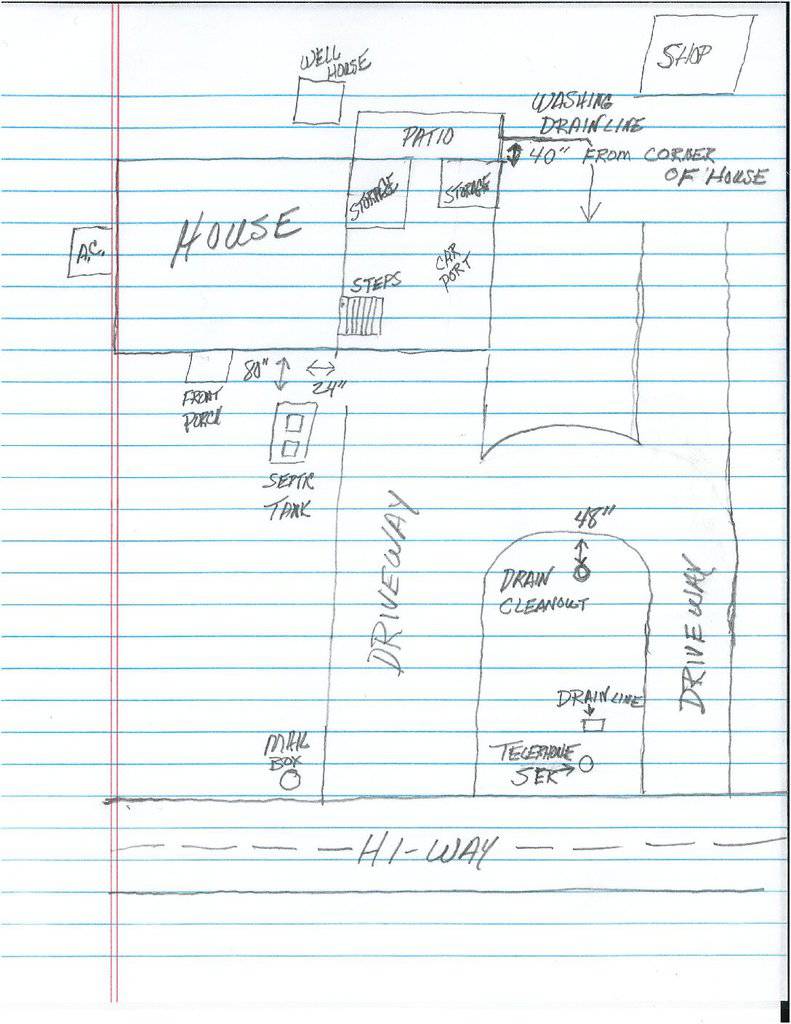 WELL
HOUSE
SHOP
WASHING
DRAIN LINE
PATIO
40" FROM CORNER
OF HOUSE
STORAGE
STORAGE
HOUSE
A.C.
CAR
PORT
STEPS
80"
24"
FRONT
PORCH
SEPTIC
TANK
DRIVEWAY
48"
DRAIN
CLEANOUT
DRIVEWAY
DRAIN LINE
MAIL
BOX
TELEPHONE
SER
HI-WAY